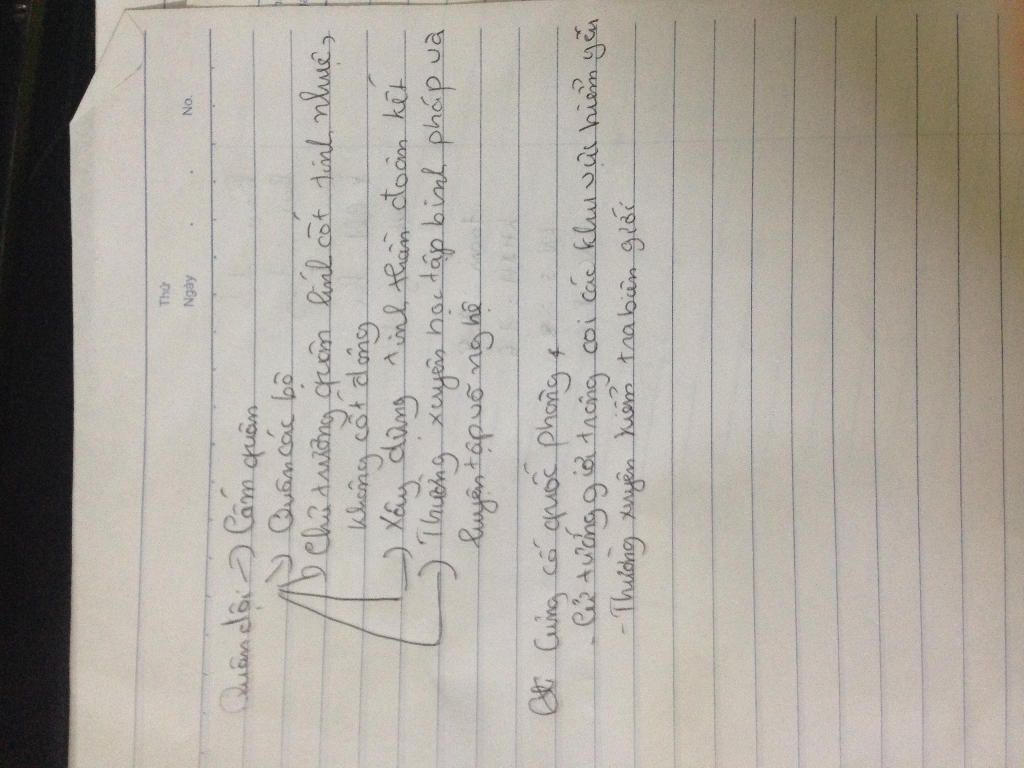 Thứ
Ngày . . No.
Quân đội -> Cấm quân
-> Quân các bộ
-> Chủ trương quân lính cốt tinh nhuệ,
không cốt đông
-> Xây dựng tinh thần đoàn kết
-> Thường xuyên học tập binh pháp và
luyện tập võ nghệ
Củng cố quốc phòng
- Cử tướng giỏi trông coi các khu vực hiểm yếu
- Thường xuyên kiểm tra biên giới